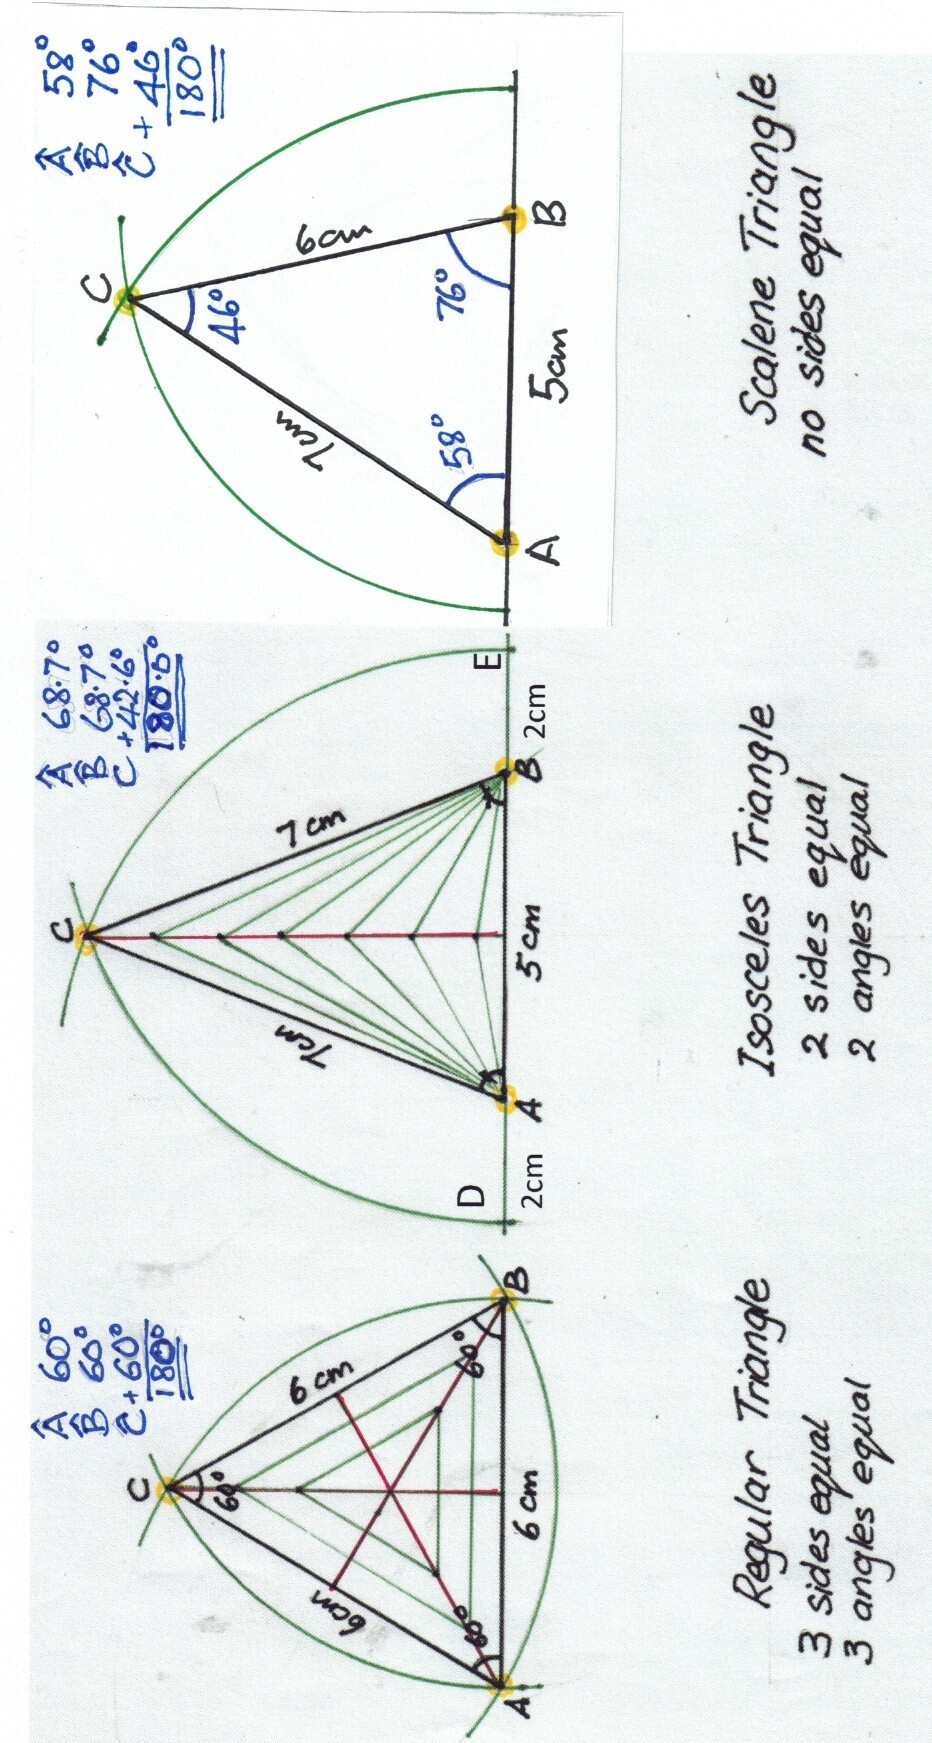 Â 60°
B̂ 60°
Ĉ +60°
180°
C
60°
6cm
6 cm
60°
60°
A
6 cm
B
Regular Triangle
3 sides equal
3 angles equal
Â 68.7°
B̂ 68.7°
Ĉ +42.6°
180.0°
C
7cm
7 cm
D
A
B
E
2cm
5 cm
2cm
Isosceles Triangle
2 sides equal
2 angles equal
Â 58°
B̂ 76°
Ĉ +46°
180°
C
46°
7cm
6cm
58°
76°
A
5cm
B
Scalene Triangle
no sides equal